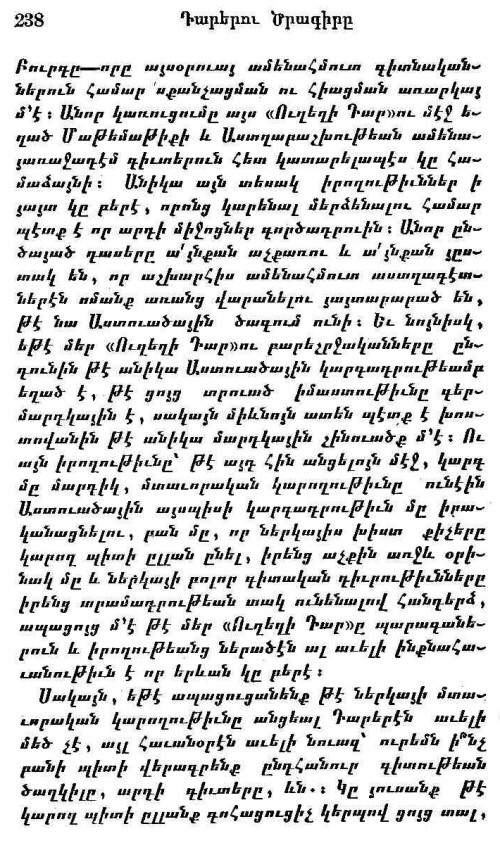 238 Դարերու Ծրագիրը
Բուրգը—որը այսօրուայ ամենահմուտ գիտնական֊
ներուն համար սքանչացման ու հիացման առարկայ
մ՚է։ Անոր կառուցումը այս «Ուղեղի Դար»ու մէջ ե֊
ղած Մաթեմաթիքի և Աստղաբաշխութեան ամենա֊
յառաջադէմ գիւտերուն հետ կատարելապէս կը հա֊
մաձայնի։ Անիկա այն տեսակ իրողութիւններ ի
յայտ կը բերէ, որոնց կարենալ մերձենալու համար
պէտք է որ արդի միջոցներ գործադրուին։ Անոր ըն֊
ծայած դասերը ա՛յնքան աչքառու և ա՛յնքան յըս֊
տակ են, որ աշխարհիս ամենահմուտ աստղագէտ֊
ներէն ոմանք առանց վարանելու յայտարարած են,
թէ նա Աստուածային ծագում ունի։ Եւ նոյնիսկ,
եթէ մեր «Ուղեղի Դար»ու բարեշրջականները ըն֊
դունին թէ անիկա Աստուածային կարգադրութեամբ
եղած է, թէ ցոյց տրուած իմաստութիւնը գեր֊
մարդկային է, սակայն միևնոյն ատեն պէտք է խոս֊
տովանին թէ անիկա մարդկային շինուածք մ՚է։ Ու
այն իրողութիւնը՝ թէ այդ հին անցելոյն մէջ, կարգ
մը մարդիկ, մտաւորական կարողութիւնը ունէին
Աստուածային այսպիսի կարգադրութիւն մը իրա֊
կանացնելու, բան մը, որ ներկայիս խիստ քիչերը
կարող պիտի ըլլան ընել, իրենց աչքին առջև օրի֊
նակ մը և ներկայի բոլոր գիտական գիւրութիւնները
իրենց տրամադրութեան տակ ունենալով հանդերձ,
ապացոյց մ՚է թէ մեր «Ուղեղի Դար»ը պարագանե֊
րուն և իրողութեանց ներածէն ալ աւելի ինքնահա֊
ւանութիւն է որ երևան կը բերէ։
Սակայն, եթէ ապացուցանենք թէ ներկայի մտա֊
ւորական կարողութիւնը անցեալ Դարերէն աւելի
մեծ չէ, այլ հաւանօրէն աւելի նուազ՝ ուրեմն ի՞նչ
բանի պիտի վերագրենք ընդհանուր գիտութեան
ծաղկիլը, արդի գիւտերը, ևն.։ Կը յուսանք թէ
կարող պիտի ըլլանք գոհացուցիչ կերպով ցոյց տալ,